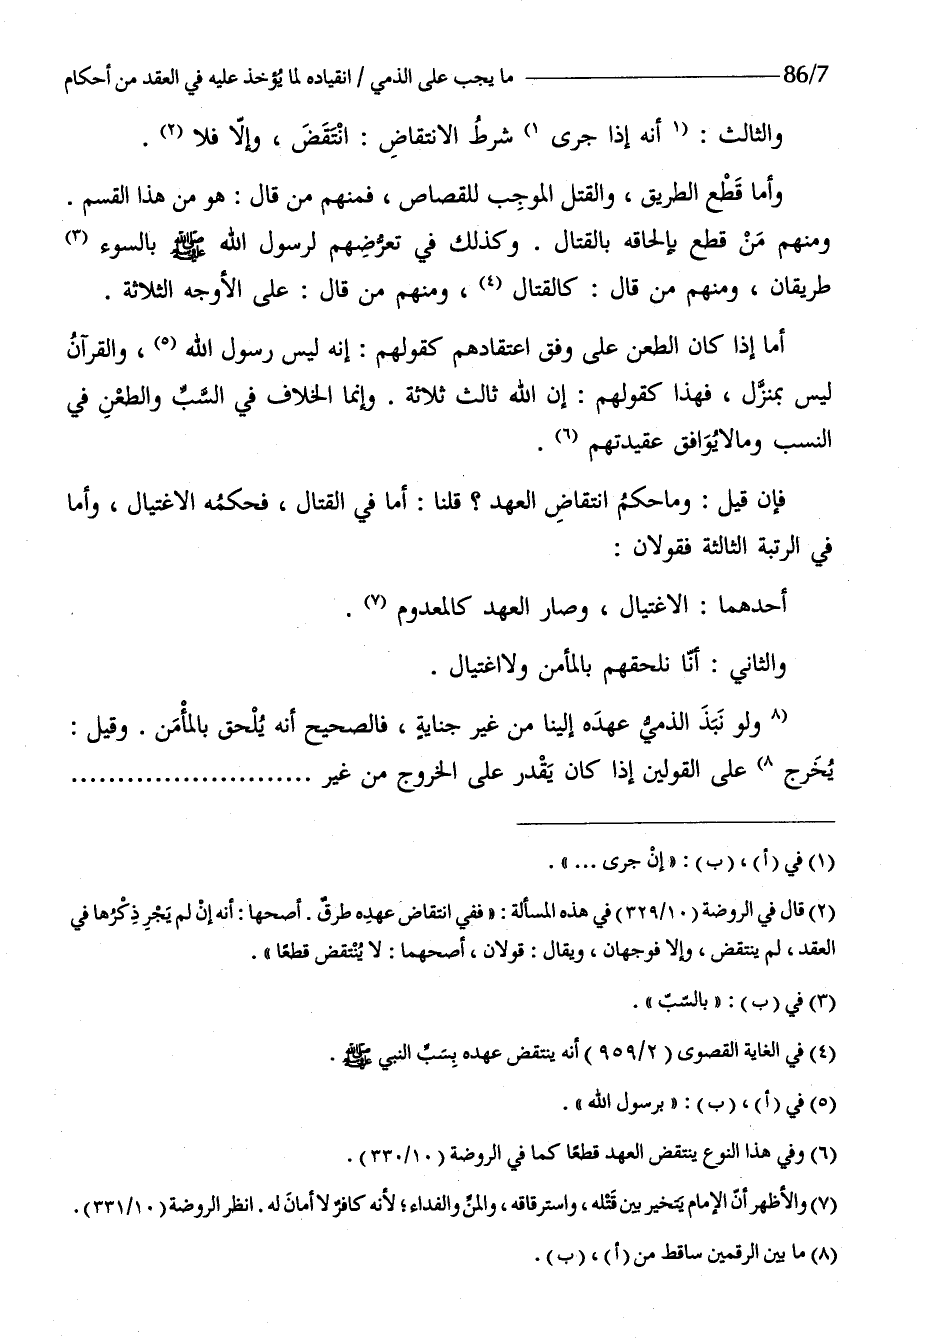 86/7 ـــــــــ ما يجب على الذمي / انقياده لما يُؤخذ عليه في العقد من أحكام
والثالث : (١ أنه إذا جرى ١) شرطُ الانتقاضِ : انْتَقَضَ ، وإلّا فلا (٢) .
وأما قَطْع الطريق ، والقتل الموجِب للقصاص ، فمنهم من قال : هو من هذا القسم .
ومنهم مَنْ قطع بإلحاقه بالقتال . وكذلك في تعرُّضِهم لرسول الله ﷺ بالسوء (٣)
طريقان ، ومنهم من قال : كالقتال (٤) ، ومنهم من قال : على الأوجه الثلاثة .
أما إذا كان الطعن على وفق اعتقادهم كقولهم : إنه ليس رسول الله (٥) ، والقرآنُ
ليس بمنزَّل ، فهذا كقولهم : إن الله ثالث ثلاثة . وإنما الخلاف في السَّبِّ والطعْنِ في
النسب ومالايُوَافق عقيدتهم (٦) .
فإن قيل : وماحكمُ انتقاضِ العهد ؟ قلنا : أما في القتال ، فحكمُه الاغتيال ، وأما
في الرتبة الثالثة فقولان :
أحدهما : الاغتيال ، وصار العهد كالمعدوم (٧) .
والثاني : أنّا نلحقهم بالمأمن ولااغتيال .
(٨ ولو نَبَذَ الذميُّ عهدَه إلينا من غير جنايةٍ ، فالصحيح أنه يُلْحق بالمأْمَن . وقيل :
يُخَرج ٨) على القولين إذا كان يَقْدر على الخروج من غير ..........................
(١) في (أ) ، (ب) : « إنْ جرى ... » .
(٢) قال في الروضة (٣٢٩/١٠) في هذه المسألة : « ففي انتقاض عهدِه طرقٌ . أصحها : أنه إنْ لم يَجْرِ ذِكْرُها في
العقد ، لم ينتقض ، وإلا فوجهان ، ويقال : قولان ، أصحهما : لا يُنْتقض قطعًا » .
(٣) في (ب) : « بالسَّبّ » .
(٤) في الغاية القصوى (٩٥٩/٢) أنه ينتقض عهده بِسَبِّ النبي ﷺ .
(٥) في (أ) ، (ب) : « برسول الله » .
(٦) وفي هذا النوع ينتقض العهد قطعًا كما في الروضة (٣٣٠/١٠) .
(٧) والأظهر أنّ الإمام يَتخير بين قَتْله ، واسترقاقه ، والمنِّ والفداء ؛ لأنه كافرٌ لا أمانَ له . انظر الروضة (٣٣١/١٠) .
(٨) ما بين الرقمين ساقط من (أ) ، (ب) .